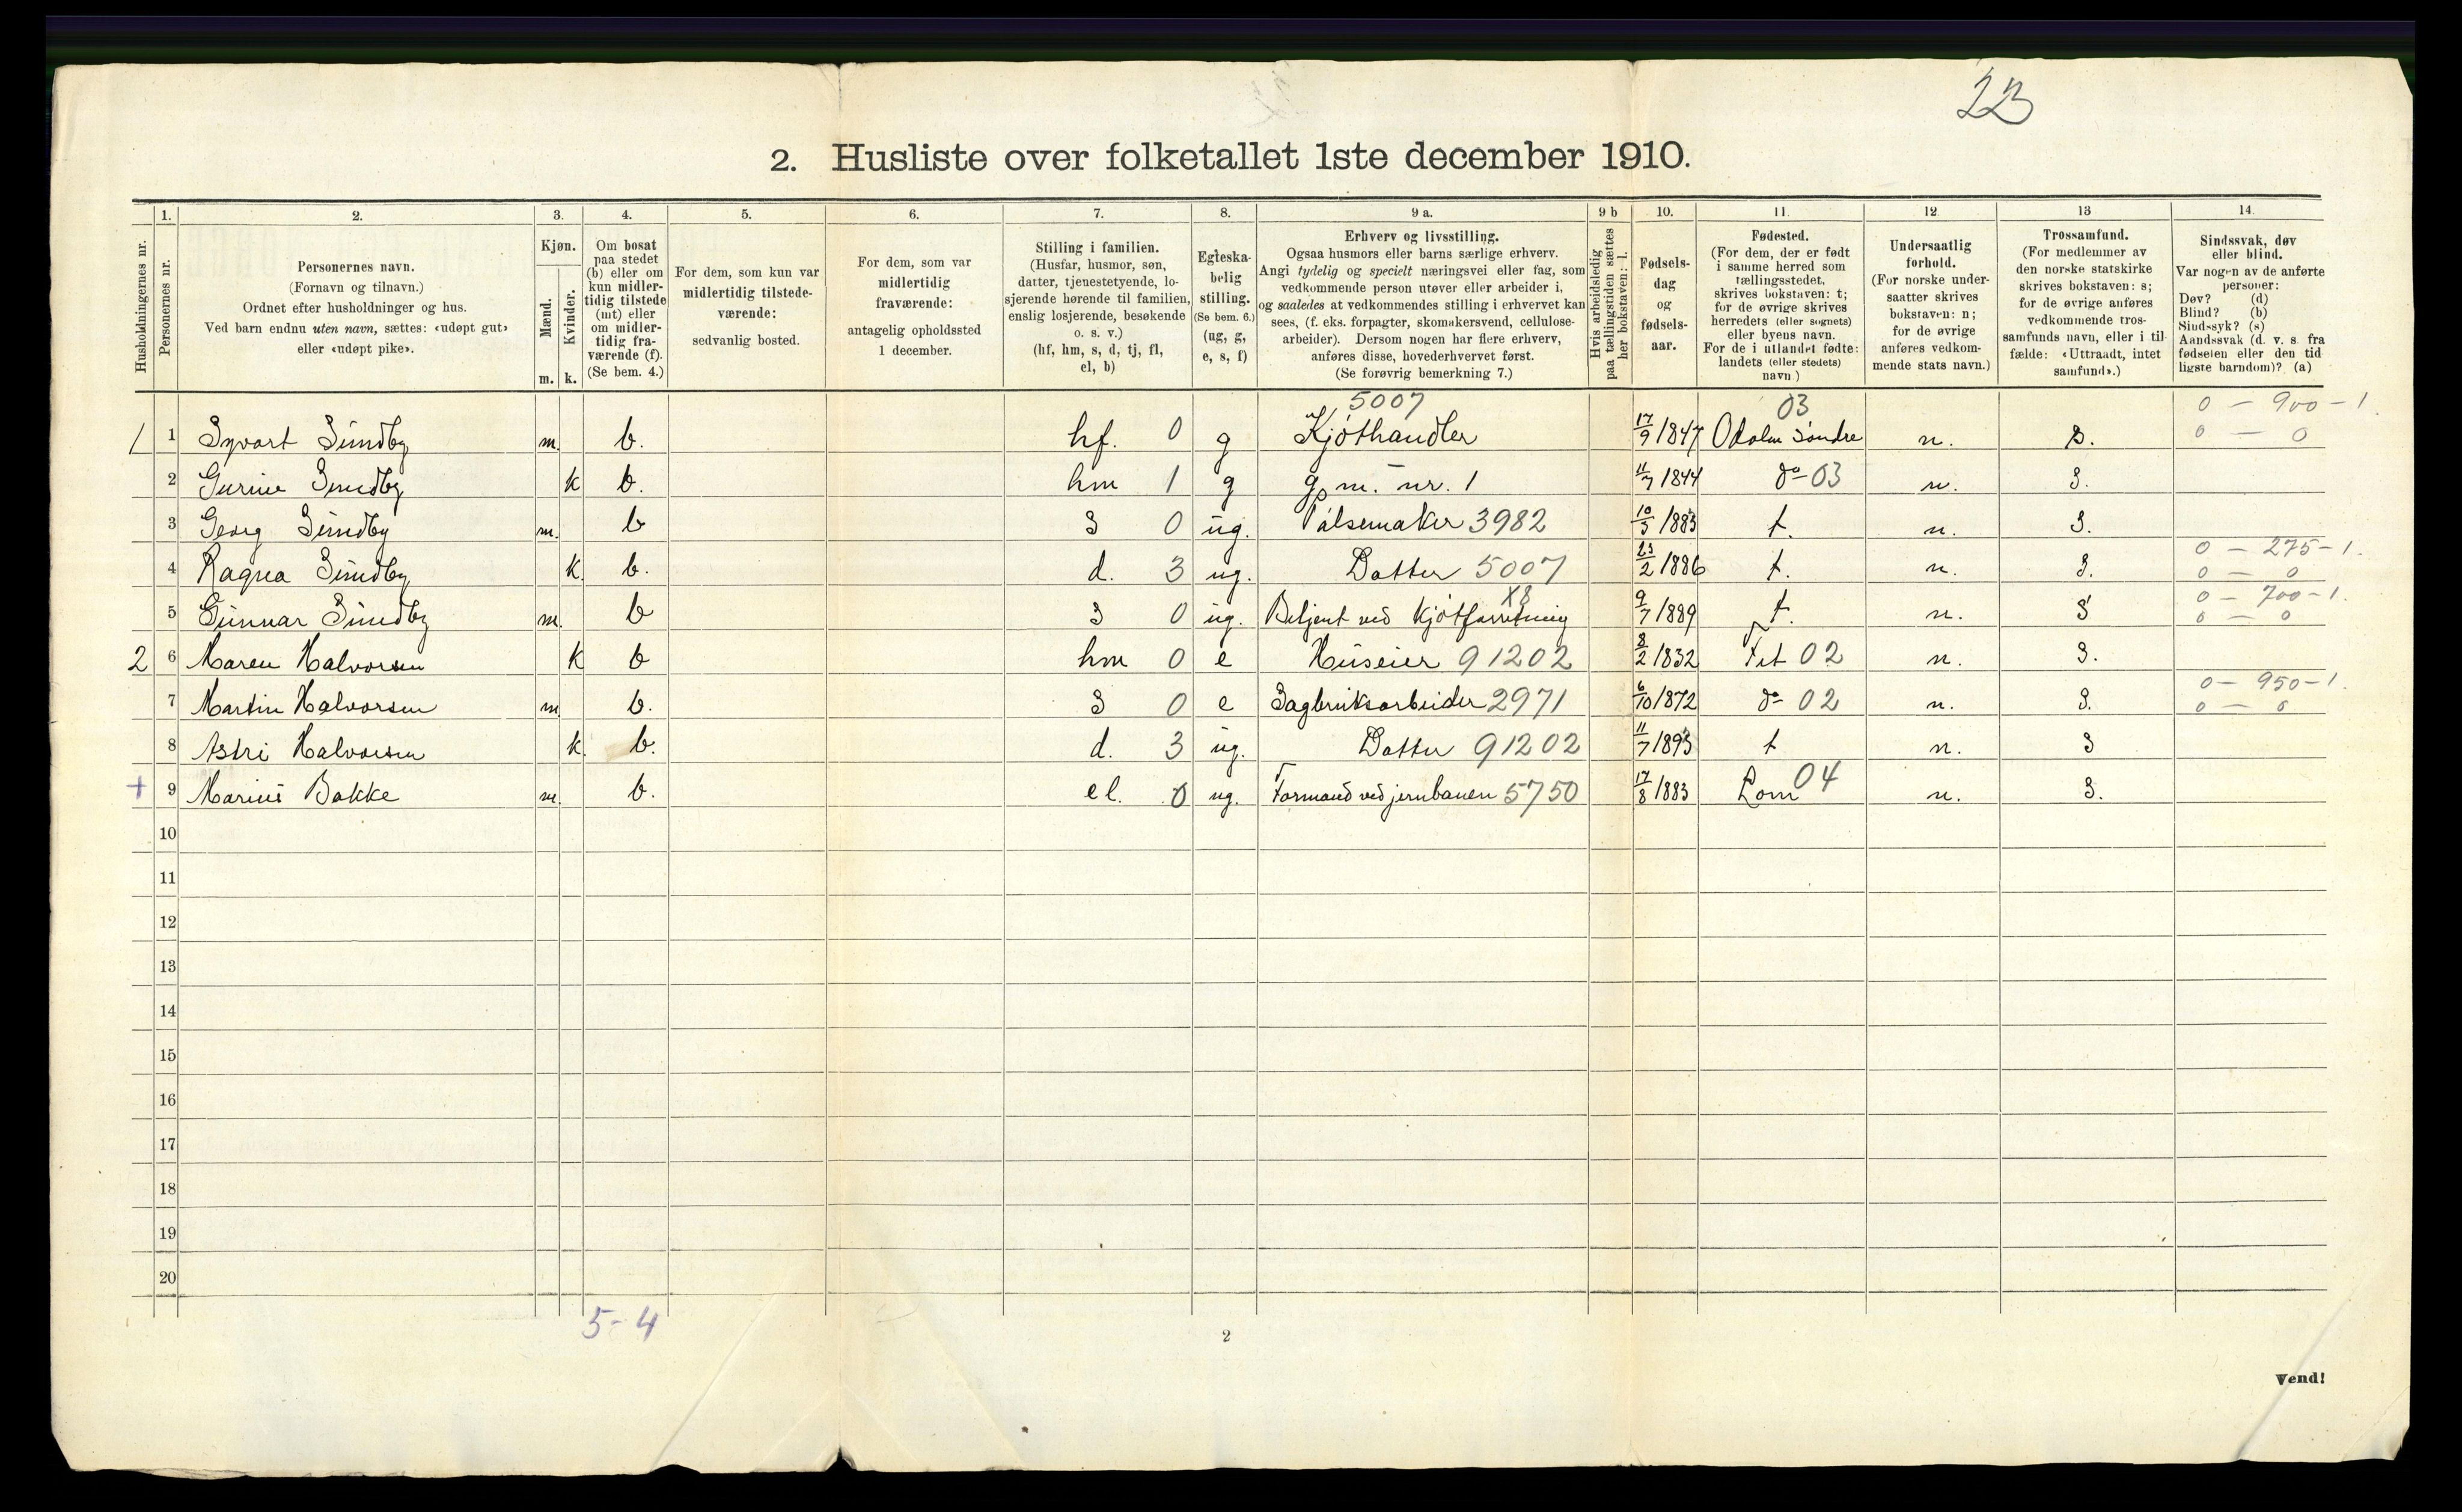 2. Husliste over folketallet 1ste december 1910.
Husholdningernes nr.
1. Personernes nr.
2. Personernes navn. (Fornavn og tilnavn.) Ordnet efter husholdninger og hus. Ved barn endnu uten navn, sættes: «udøpt gut» eller «udøpt pike».
3. Kjøn. Mænd. m. Kvinder. k.
4. Om bosat paa stedet (b) eller om kun midlertidig tilstede (mt) eller om midlertidig fraværende (f). (Se bem. 4.)
5. For dem, som kun var midlertidig tilstedeværende: sedvanlig bosted.
6. For dem, som var midlertidig fraværende: antagelig opholdssted 1 december.
7. Stilling i familien. (Husfar, husmor, søn, datter, tjenestetyende, losjerende hørende til familien, enslig losjerende, besøkende o. s. v.) (hf, hm, s, d, tj, fl, el, b)
8. Egteskabelig stilling. (Se bem. 6.) (ug, g, e, s, f)
9 a. Erhverv og livsstilling. Ogsaa husmors eller barns særlige erhverv. Angi tydelig og specielt næringsvei eller fag, som vedkommende person utøver eller arbeider i, og saaledes at vedkommendes stilling i erhvervet kan sees, (f. eks. forpagter, skomakersvend, cellulosearbeider). Dersom nogen har flere erhverv, anføres disse, hovederhvervet først. (Se forøvrig bemerkning 7.)
9 b Hvis arbeidsledig paa tællingstiden sættes her bokstaven: l.
10. Fødselsdag og fødselsaar.
11. Fødested. (For dem, der er født i samme herred som tællingsstedet, skrives bokstaven: t; for de øvrige skrives herredets (eller sognets) eller byens navn. For de i utlandet fødte: landets (eller stedets) navn.)
12 Undersaatlig forhold. (For norske undersaatter skrives bokstaven: n; for de øvrige anføres vedkommende stats navn.)
13 Trossamfund. (For medlemmer av den norske statskirke skrives bokstaven: s; for de øvrige anføres vedkommende trossamfunds navn, eller i tilfælde: «Uttraadt, intet samfund».)
14. Sindssvak, døv eller blind. Var nogen av de anførte personer: Døv? (d) Blind? (b) Sindssyk? (s) Aandssvak (d. v. s. fra fødselen eller den tidligste barndom)? (a)
5007 03 0 - 900 - 1.
1 1 Syvart Sundby m. b. hf. 0 g Kjøthandler 17/9 1847 Odalen Søndre n. S. 0 - 0
2 Gurine Sundby k b. hm 1 g g. m. nr. 1 11/7 1844 do 03 n. S.
3 Georg Sundby m. b S 0 ug. Pølsemaker 3982 10/3 1883 t. n. S.
0 - 275 - 1.
4 Ragna Sundby k. b. d. 3 ug. Datter 5007 23/2 1886 t. n. S. 0 - 0
X8 0 - 700 - 1.
5 Gunnar Sundby m. b S 0 ug. Betjent ved Kjøtforretning 9/7 1889 t. n. S 0 - 0
2 6 Maren Halvorsen k b hm 0 e Huseier 91202 8/2 1832 Fet 02 n. S.
0 - 950 - 1.
7 Martin Halvorsen m b. S 0 e Sagbruksarbeider 2971 6/10 1872 do 02 n. S. 0 - 0
8 Astri Halvorsen k. b. d. 3 ug. Datter 91202 11/7 1893 t n. S
+ 9 Marius Bakke m. b. el. 0 ug. Formand ved jernbanen 5750 17/8 1883 Lom 04 n. S.
10
11
12
13
14
15
16
17
18
19
20
5-4
2
Vend!